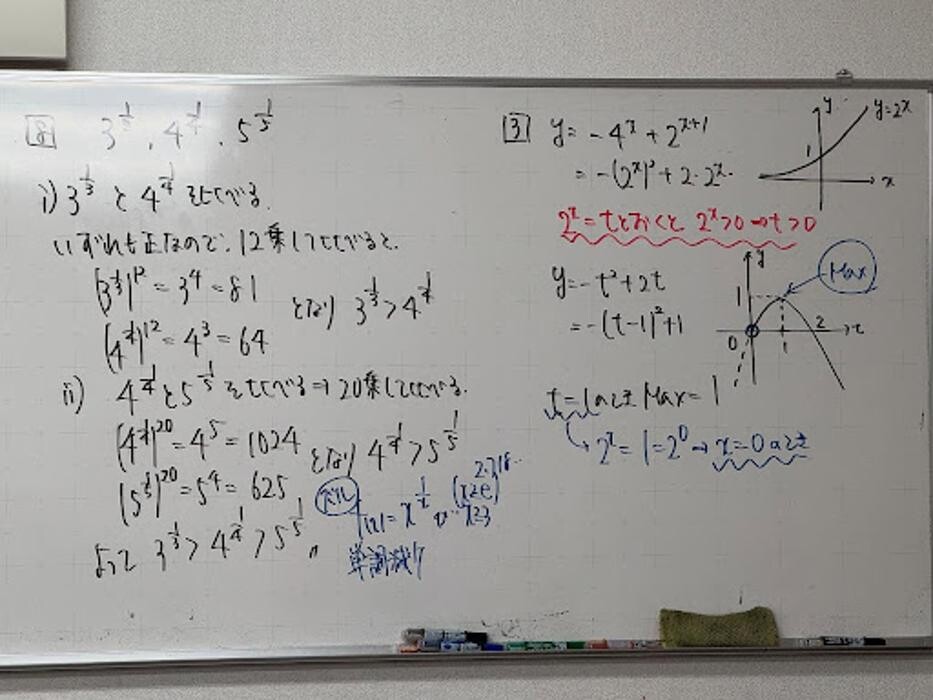 [8] 3^{1/3}, 4^{1/4}, 5^{1/5}
i) 3^{1/3} と 4^{1/4} をくらべる.
いずれも正なので, 12乗してくらべると.
(3^{1/3})^{12} = 3^4 = 81
となり 3^{1/3} > 4^{1/4}
(4^{1/4})^{12} = 4^3 = 64
ii) 4^{1/4} と 5^{1/5} をくらべる → 20乗してくらべる.
(4^{1/4})^{20} = 4^5 = 1024
となり 4^{1/4} > 5^{1/5}
(5^{1/5})^{20} = 5^4 = 625
よって 3^{1/3} > 4^{1/4} > 5^{1/5} 〃
f(x) = x^{1/x} (x≧e) 2.718..
x≧3
単調減少
[3] y = -4^x + 2^{x+1}
= -(2^x)^2 + 2・2^x.
y
y=2^x
1
x
2^x = t とおくと 2^x > 0 → t > 0
y = -t^2 + 2t
= -(t-1)^2 + 1
y
Max
1
0
1
2
t
t=1のとき Max = 1
→ 2^x = 1 = 2^0 → x=0のとき